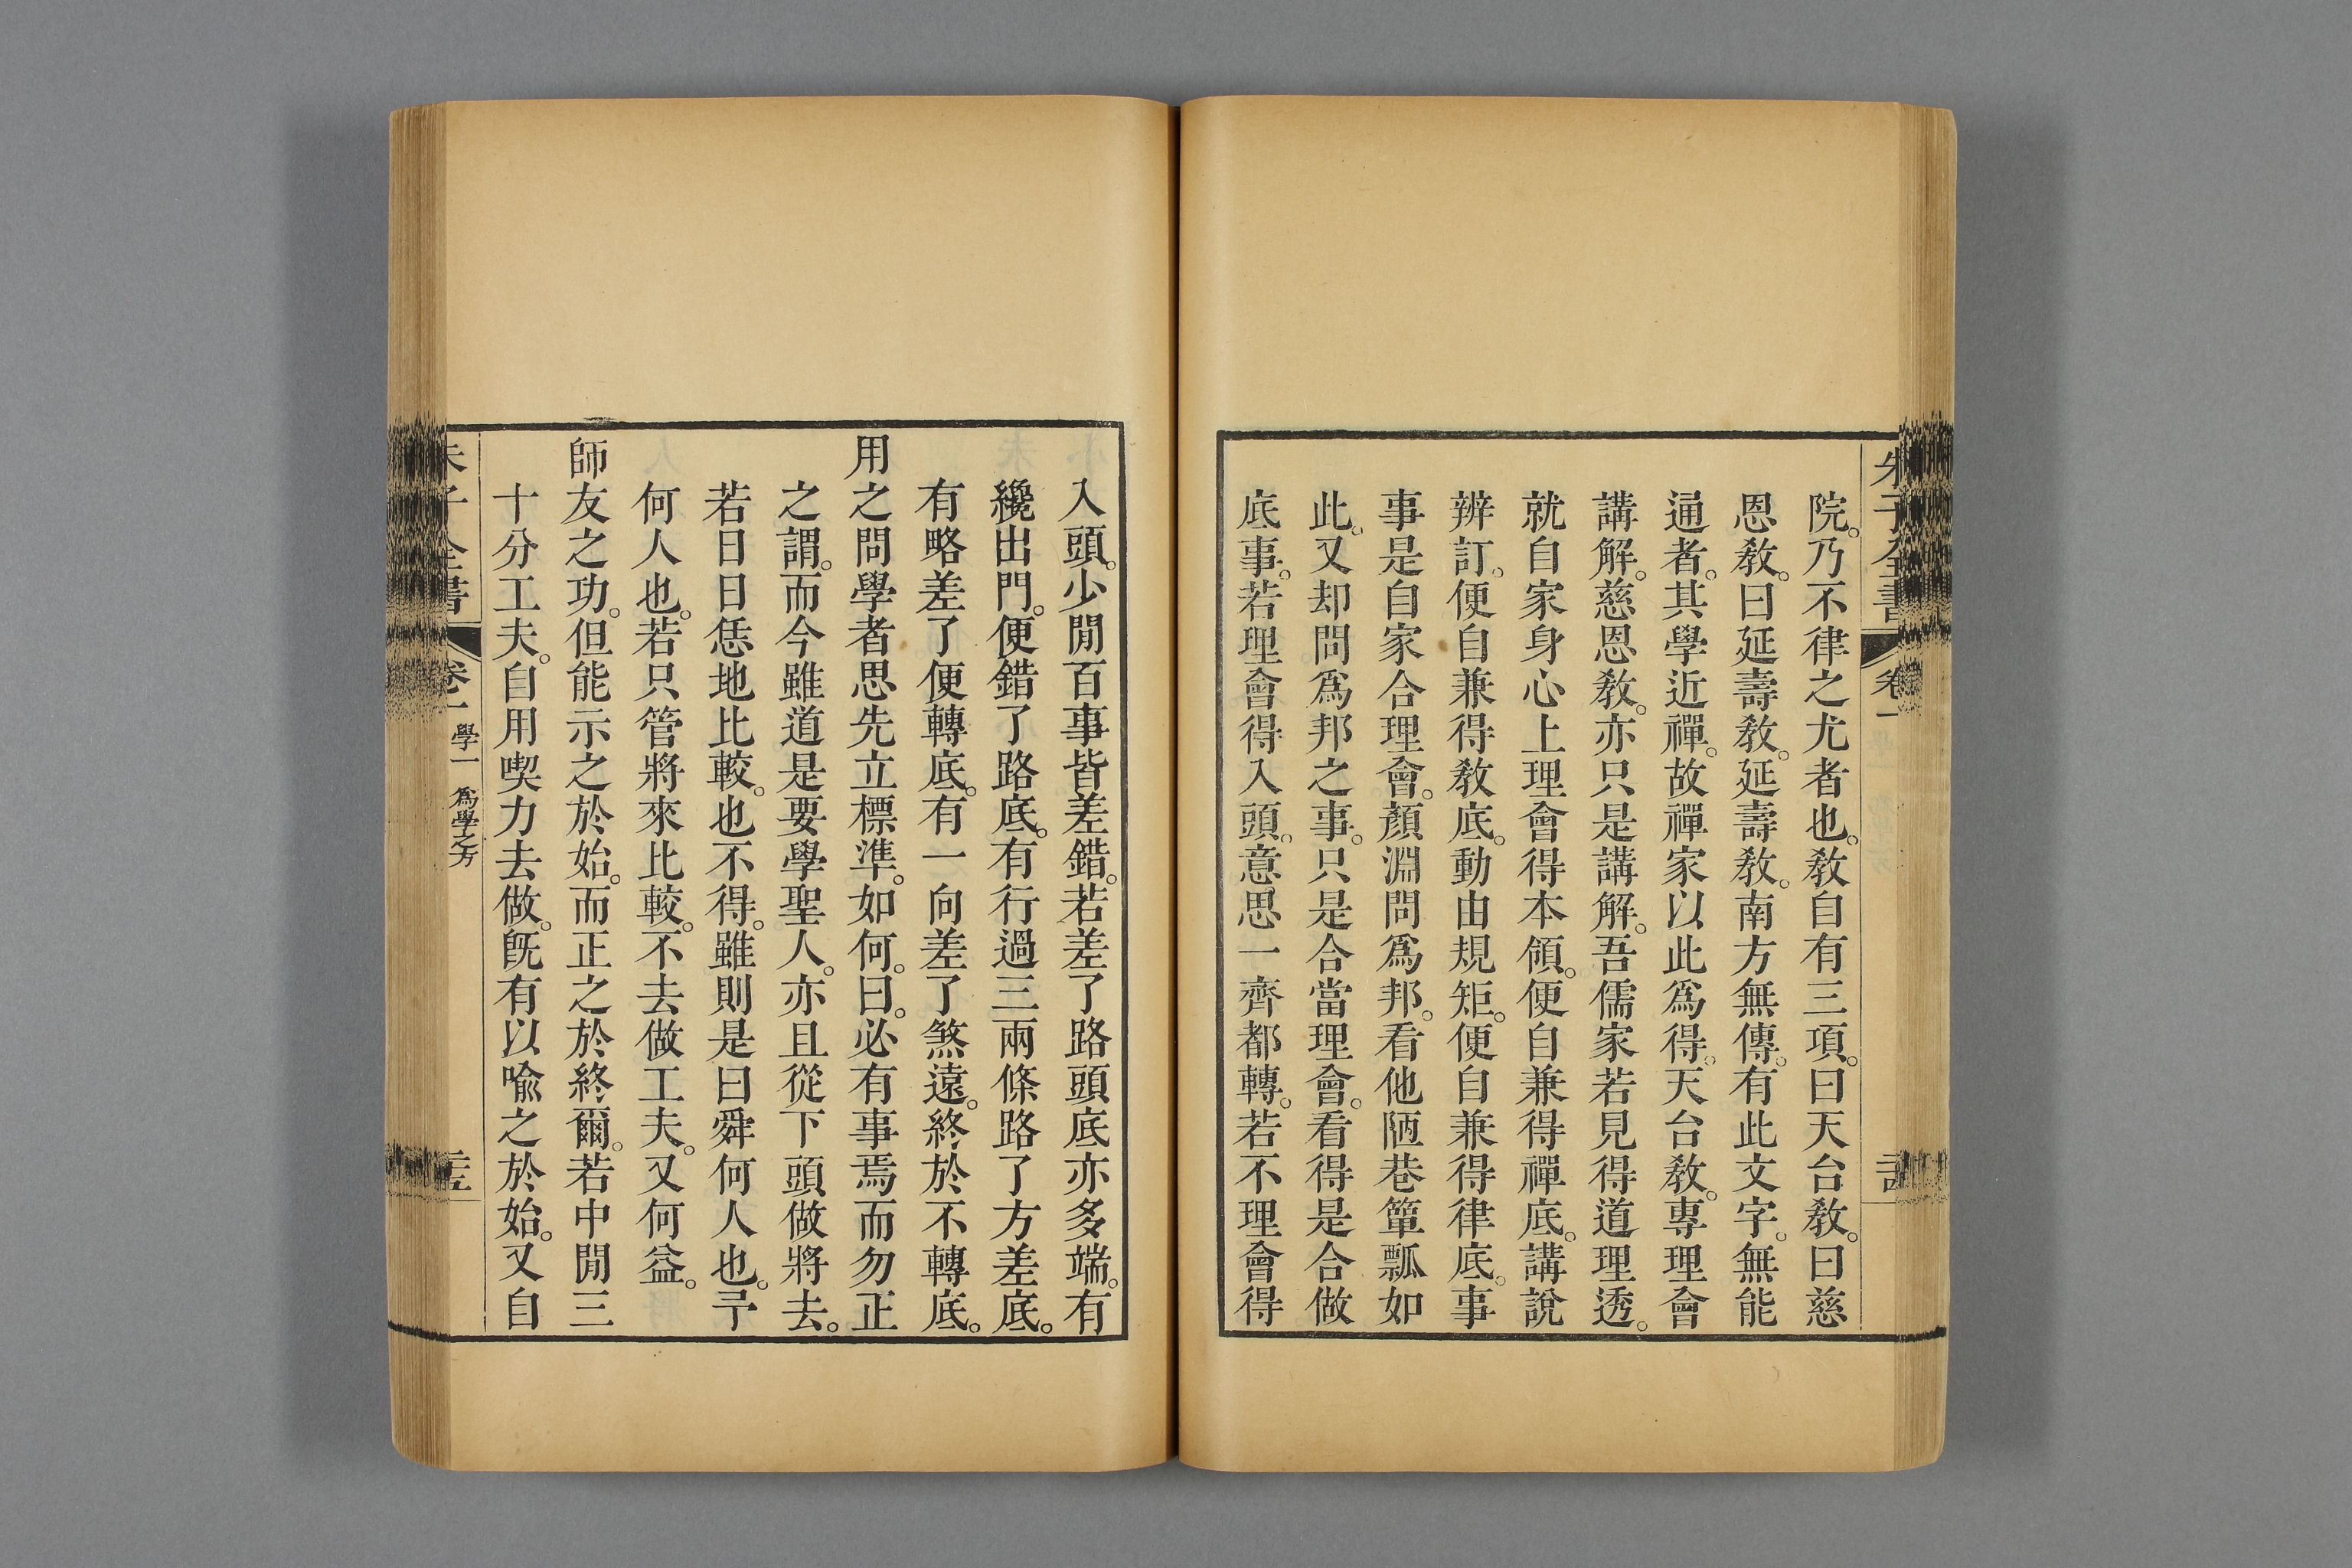 朱子全書
卷一
院。乃不律之尤者也。敎自有三項。曰天台敎。曰慈
恩敎。曰延壽敎。延壽敎。南方無傳。有此文字。無能
通者。其學近禪。故禪家以此爲得。天台敎。專理會
講解。慈恩敎。亦只是講解。吾儒家若見得道理透。
就自家身心上理會得本領。便自兼得禪底。講說
辨訂。便自兼得敎底。動由規矩。便自兼得律底。事
事是自家合理會。顏淵問爲邦。看他陋巷簞瓢如
此。又却問爲邦之事。只是合當理會。看得是合做
底事。若理會得入頭。意思一齊都轉。若不理會得
入頭。少閒百事皆差錯。若差了路頭底亦多端。有
纔出門。便錯了路底。有行過三兩條路了方差底。
有略差了便轉底。有一向差了煞遠。終於不轉底。
用之問學者思先立標準。如何。曰。必有事焉而勿正
之謂。而今雖道是要學聖人。亦且從下頭做將去。
若日日恁地比較。也不得。雖則是曰舜何人也。予
何人也。若只管將來比較。不去做工夫。又何益。
師友之功。但能示之於始。而正之於終爾。若中閒三
十分工夫。自用喫力去做。旣有以喩之於始。又自
朱子全書
卷一
學一
爲學之方